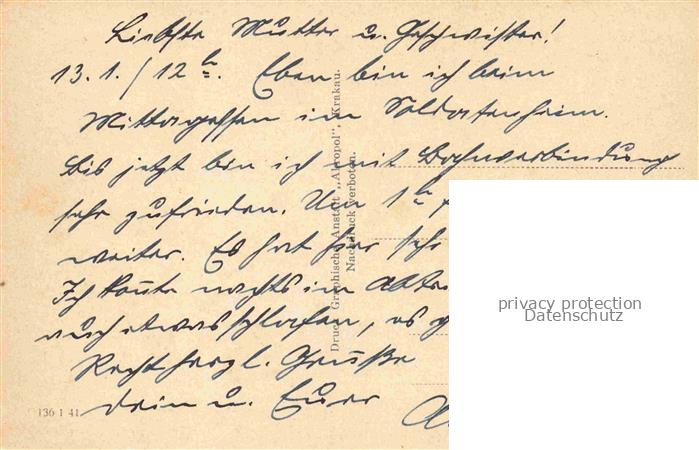 Liebste Mutter u. Geschwister!
13.1./12 h. Eben bin ich beim
Mittagessen im Soldatenheim.
Bis jetzt bin ich mit Bahnverbindung
sehr zufrieden. Um 1 h
weiter. Es hat hier sehr
Ich konnte nachts im Abte
auch etwas schlafen, es g
Recht herzl. Grüße
Dein u. Euer
Druck: Graphische Anstalt „Akropol", Krakau.
Nachdruck verboten.
136 1 41
privacy protection
Datenschutz